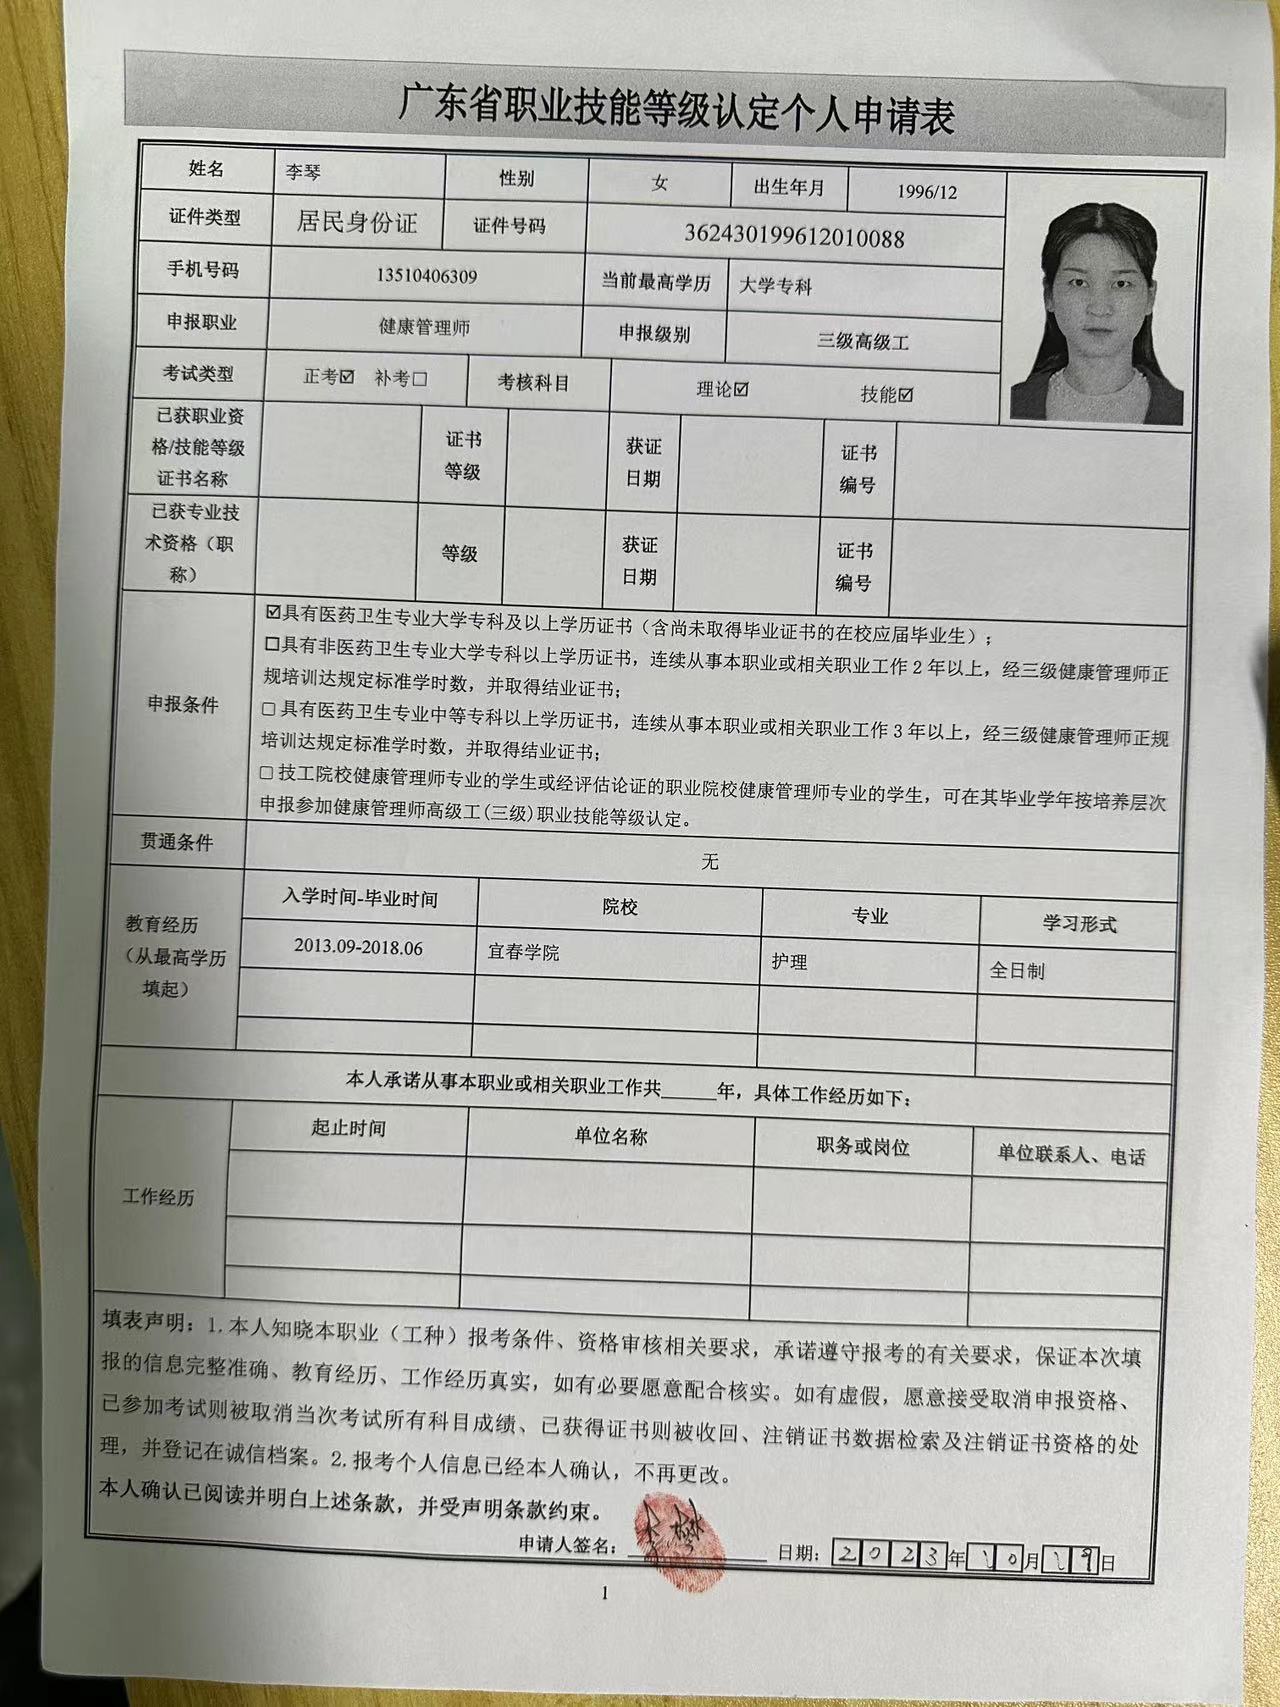 广东省职业技能等级认定个人申请表
姓名 李琴 性别 女 出生年月 1996/12
证件类型 居民身份证 证件号码 362430199612010088
手机号码 13510406309 当前最高学历 大学专科
申报职业 健康管理师 申报级别 三级高级工
考试类型 正考☑ 补考☐ 考核科目 理论☑ 技能☑
已获职业资
格/技能等级
证书名称
证书
等级
获证
日期
证书
编号
已获专业技
术资格（职
称）
等级
获证
日期
证书
编号
申报条件
☑具有医药卫生专业大学专科及以上学历证书（含尚未取得毕业证书的在校应届毕业生）；
☐具有非医药卫生专业大学专科以上学历证书，连续从事本职业或相关职业工作 2 年以上，经三级健康管理师正
规培训达规定标准学时数，并取得结业证书；
☐ 具有医药卫生专业中等专科以上学历证书，连续从事本职业或相关职业工作 3 年以上，经三级健康管理师正规
培训达规定标准学时数，并取得结业证书；
☐ 技工院校健康管理师专业的学生或经评估论证的职业院校健康管理师专业的学生，可在其毕业学年按培养层次
申报参加健康管理师高级工(三级)职业技能等级认定。
贯通条件 无
教育经历
（从最高学历
填起）
入学时间-毕业时间 院校 专业 学习形式
2013.09-2018.06 宜春学院 护理 全日制
本人承诺从事本职业或相关职业工作共______年，具体工作经历如下：
工作经历
起止时间 单位名称 职务或岗位 单位联系人、电话
填表声明：1.本人知晓本职业（工种）报考条件、资格审核相关要求，承诺遵守报考的有关要求，保证本次填
报的信息完整准确、教育经历、工作经历真实，如有必要愿意配合核实。如有虚假，愿意接受取消申报资格、
已参加考试则被取消当次考试所有科目成绩、已获得证书则被收回、注销证书数据检索及注销证书资格的处
理，并登记在诚信档案。2.报考个人信息已经本人确认，不再更改。
本人确认已阅读并明白上述条款，并受声明条款约束。
申请人签名： 李琴 日期：2023年10月19日
1